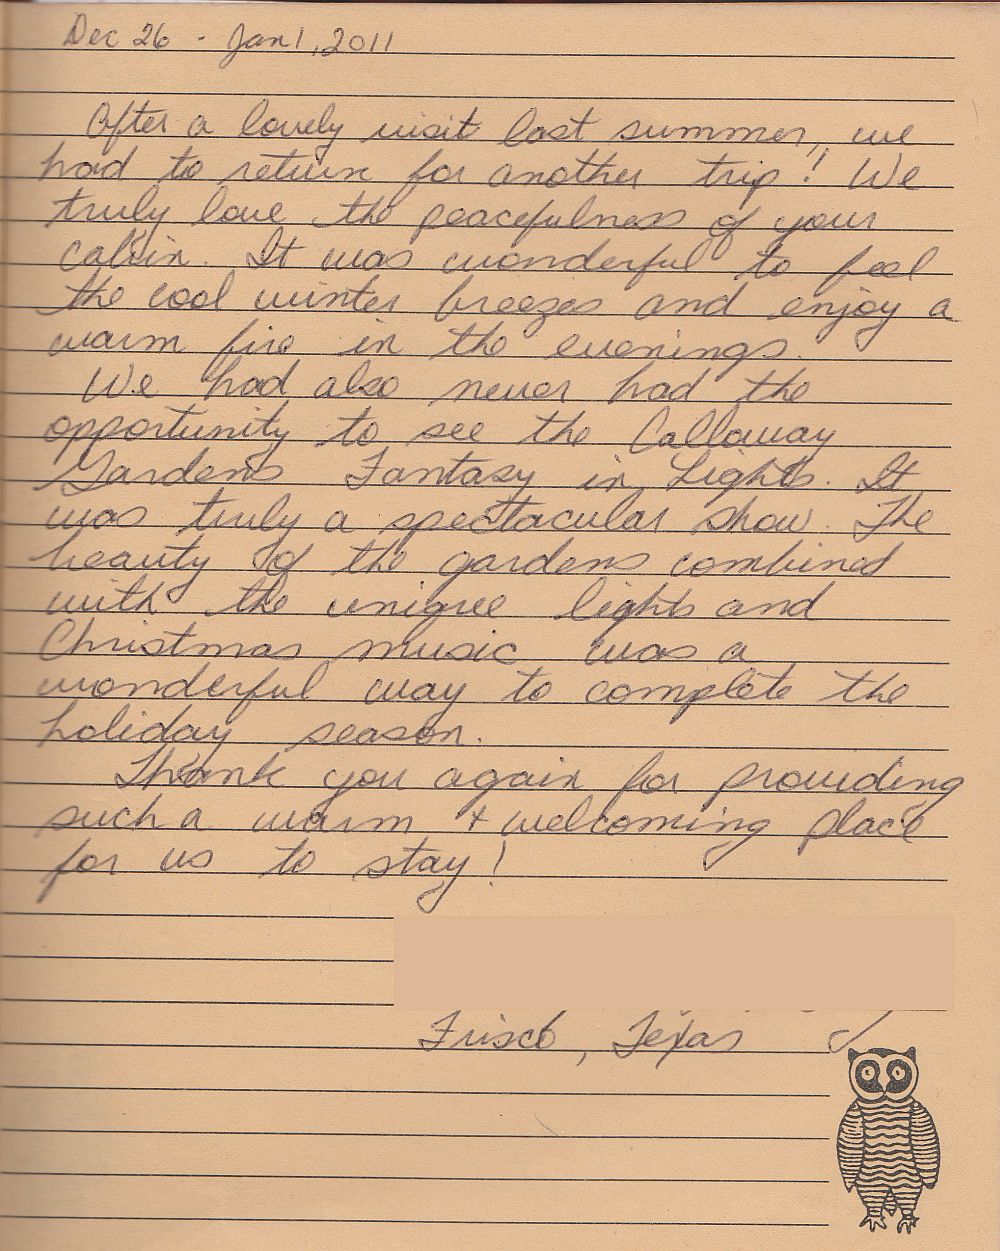 Dec 26 - Jan 1, 2011
After a lovely visit last summer, we
had to return for another trip! We
truly love the peacefulness of your
cabin. It was wonderful to feel
the cool winter breezes and enjoy a
warm fire in the evenings.
We had also never had the
opportunity to see the Callaway
Gardens Fantasy in Lights. It
was truly a spectacular show. The
beauty of the gardens combined
with the unique lights and
Christmas music was a
wonderful way to complete the
holiday season.
Thank you again for providing
such a warm + welcoming place
for us to stay!
Frisco, Texas